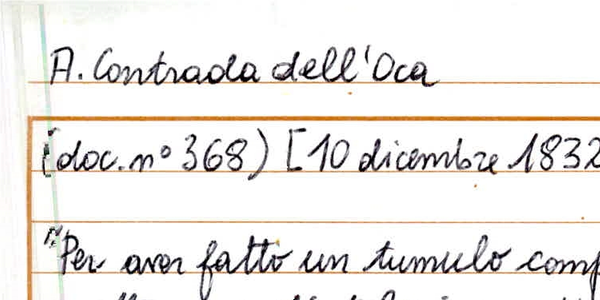 A. Contrada dell'Oca
(doc. n° 368) [10 dicembre 1832
"Per aver fatto un tumulo comp